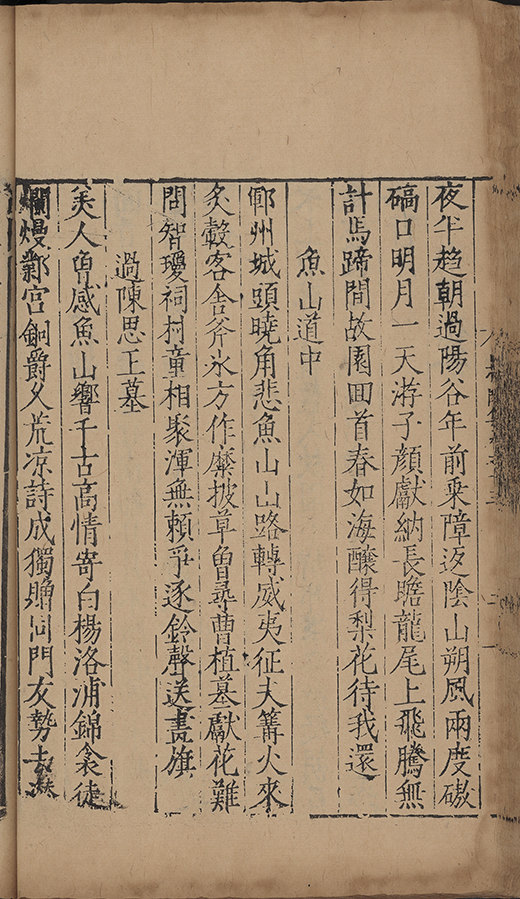 夜半趋朝過陽谷年前乘障返陰山朔風兩度磝
碻口明月一天游子顔獻納長瞻龍尾上飛騰無
計馬蹄間故園囬首春如海釀得梨花待我還
魚山道中
鄆州城頭曉角悲魚山山路轉威夷征夫篝火來
炙轂客舎斧氷方作糜披草曽尋曹植墓獻花難
問智瓊祠村童相聚渾無頼爭逐鈴聲送畫旗
過陳思王墓
美人曽感魚山響千古高情寄白楊洛浦錦衾徒
爛熳鄴宫銅爵久荒凉詩成獨贈同門友勢去